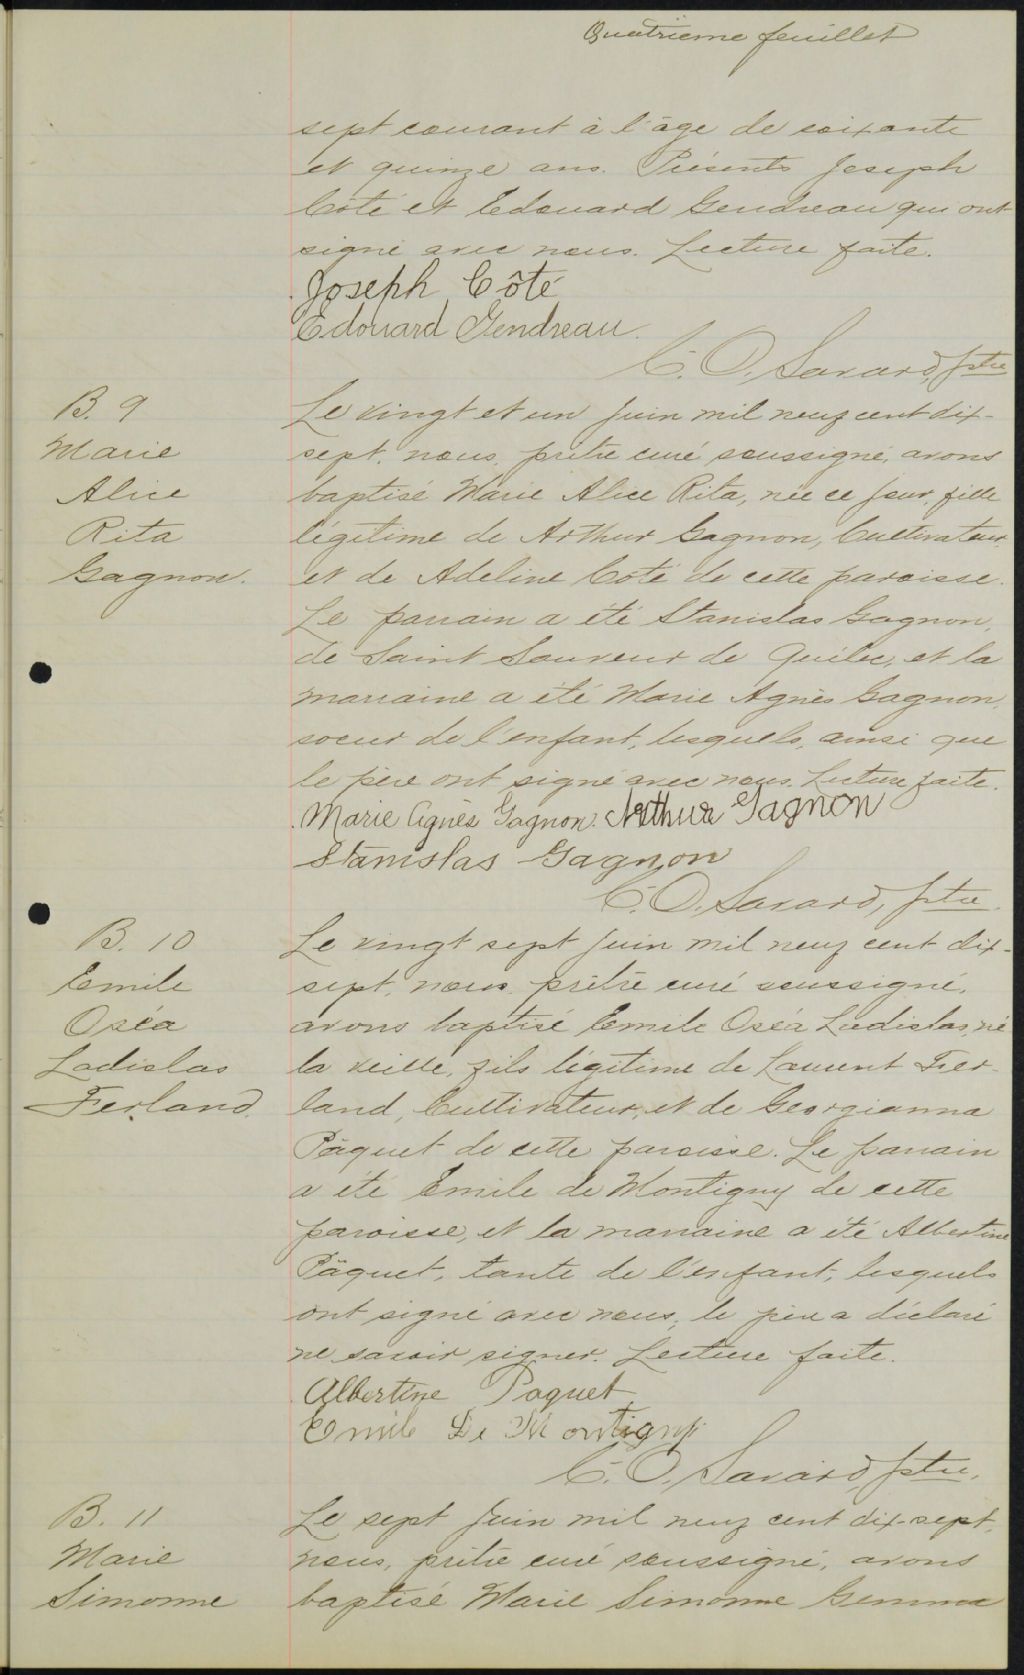 Quatrième feuillet
sept courant à l'âge de soixante
et quinze ans. Présents Joseph
Côté et Edouard Gendreau qui ont
signé avec nous. Lecture faite.
Joseph Côté
Edouard Gendreau.
C. O. Savard, ptre
B. 9
Marie
Alice
Rita
Gagnon.
Le vingt et un Juin mil neuf cent dix-
sept, nous, prêtre curé soussigné, avons
baptisé Marie Alice Rita, née ce jour, fille
légitime de Arthur Gagnon, Cultivateur,
et de Adeline Coté de cette paroisse.
Le parrain a été Stanislas Gagnon,
de Saint Sauveur de Québec, et la
marraine a été Marie Agnès Gagnon,
soeur de l'enfant, lesquels, ainsi que
le père ont signé avec nous. Lecture faite.
Marie Agnès Gagnon. Arthur Gagnon
Stanislas Gagnon
C. O. Savard, ptre.
B. 10
Emile
Oséa
Ladislas
Ferland.
Le vingt sept Juin mil neuf cent dix-
sept, nous, prêtre curé soussigné,
avons baptisé Emile Oséa Ladislas, né
la veille, fils légitime de Laurent Fer-
land, Cultivateur, et de Georgianna
Pâquet de cette paroisse. Le parrain
a été Emile de Montigny de cette
paroisse, et la marraine a été Albertine
Pâquet, tante de l'enfant, lesquels
ont signé avec nous, le père a déclaré
ne savoir signer. Lecture faite.
Albertine Paquet
Emile De Montigny
C. O. Savard, ptre.
B. 11
Marie
Simonne
Le sept Juin mil neuf cent dix-sept,
nous, prêtre curé soussigné, avons
baptisé Marie Simonne Gemma